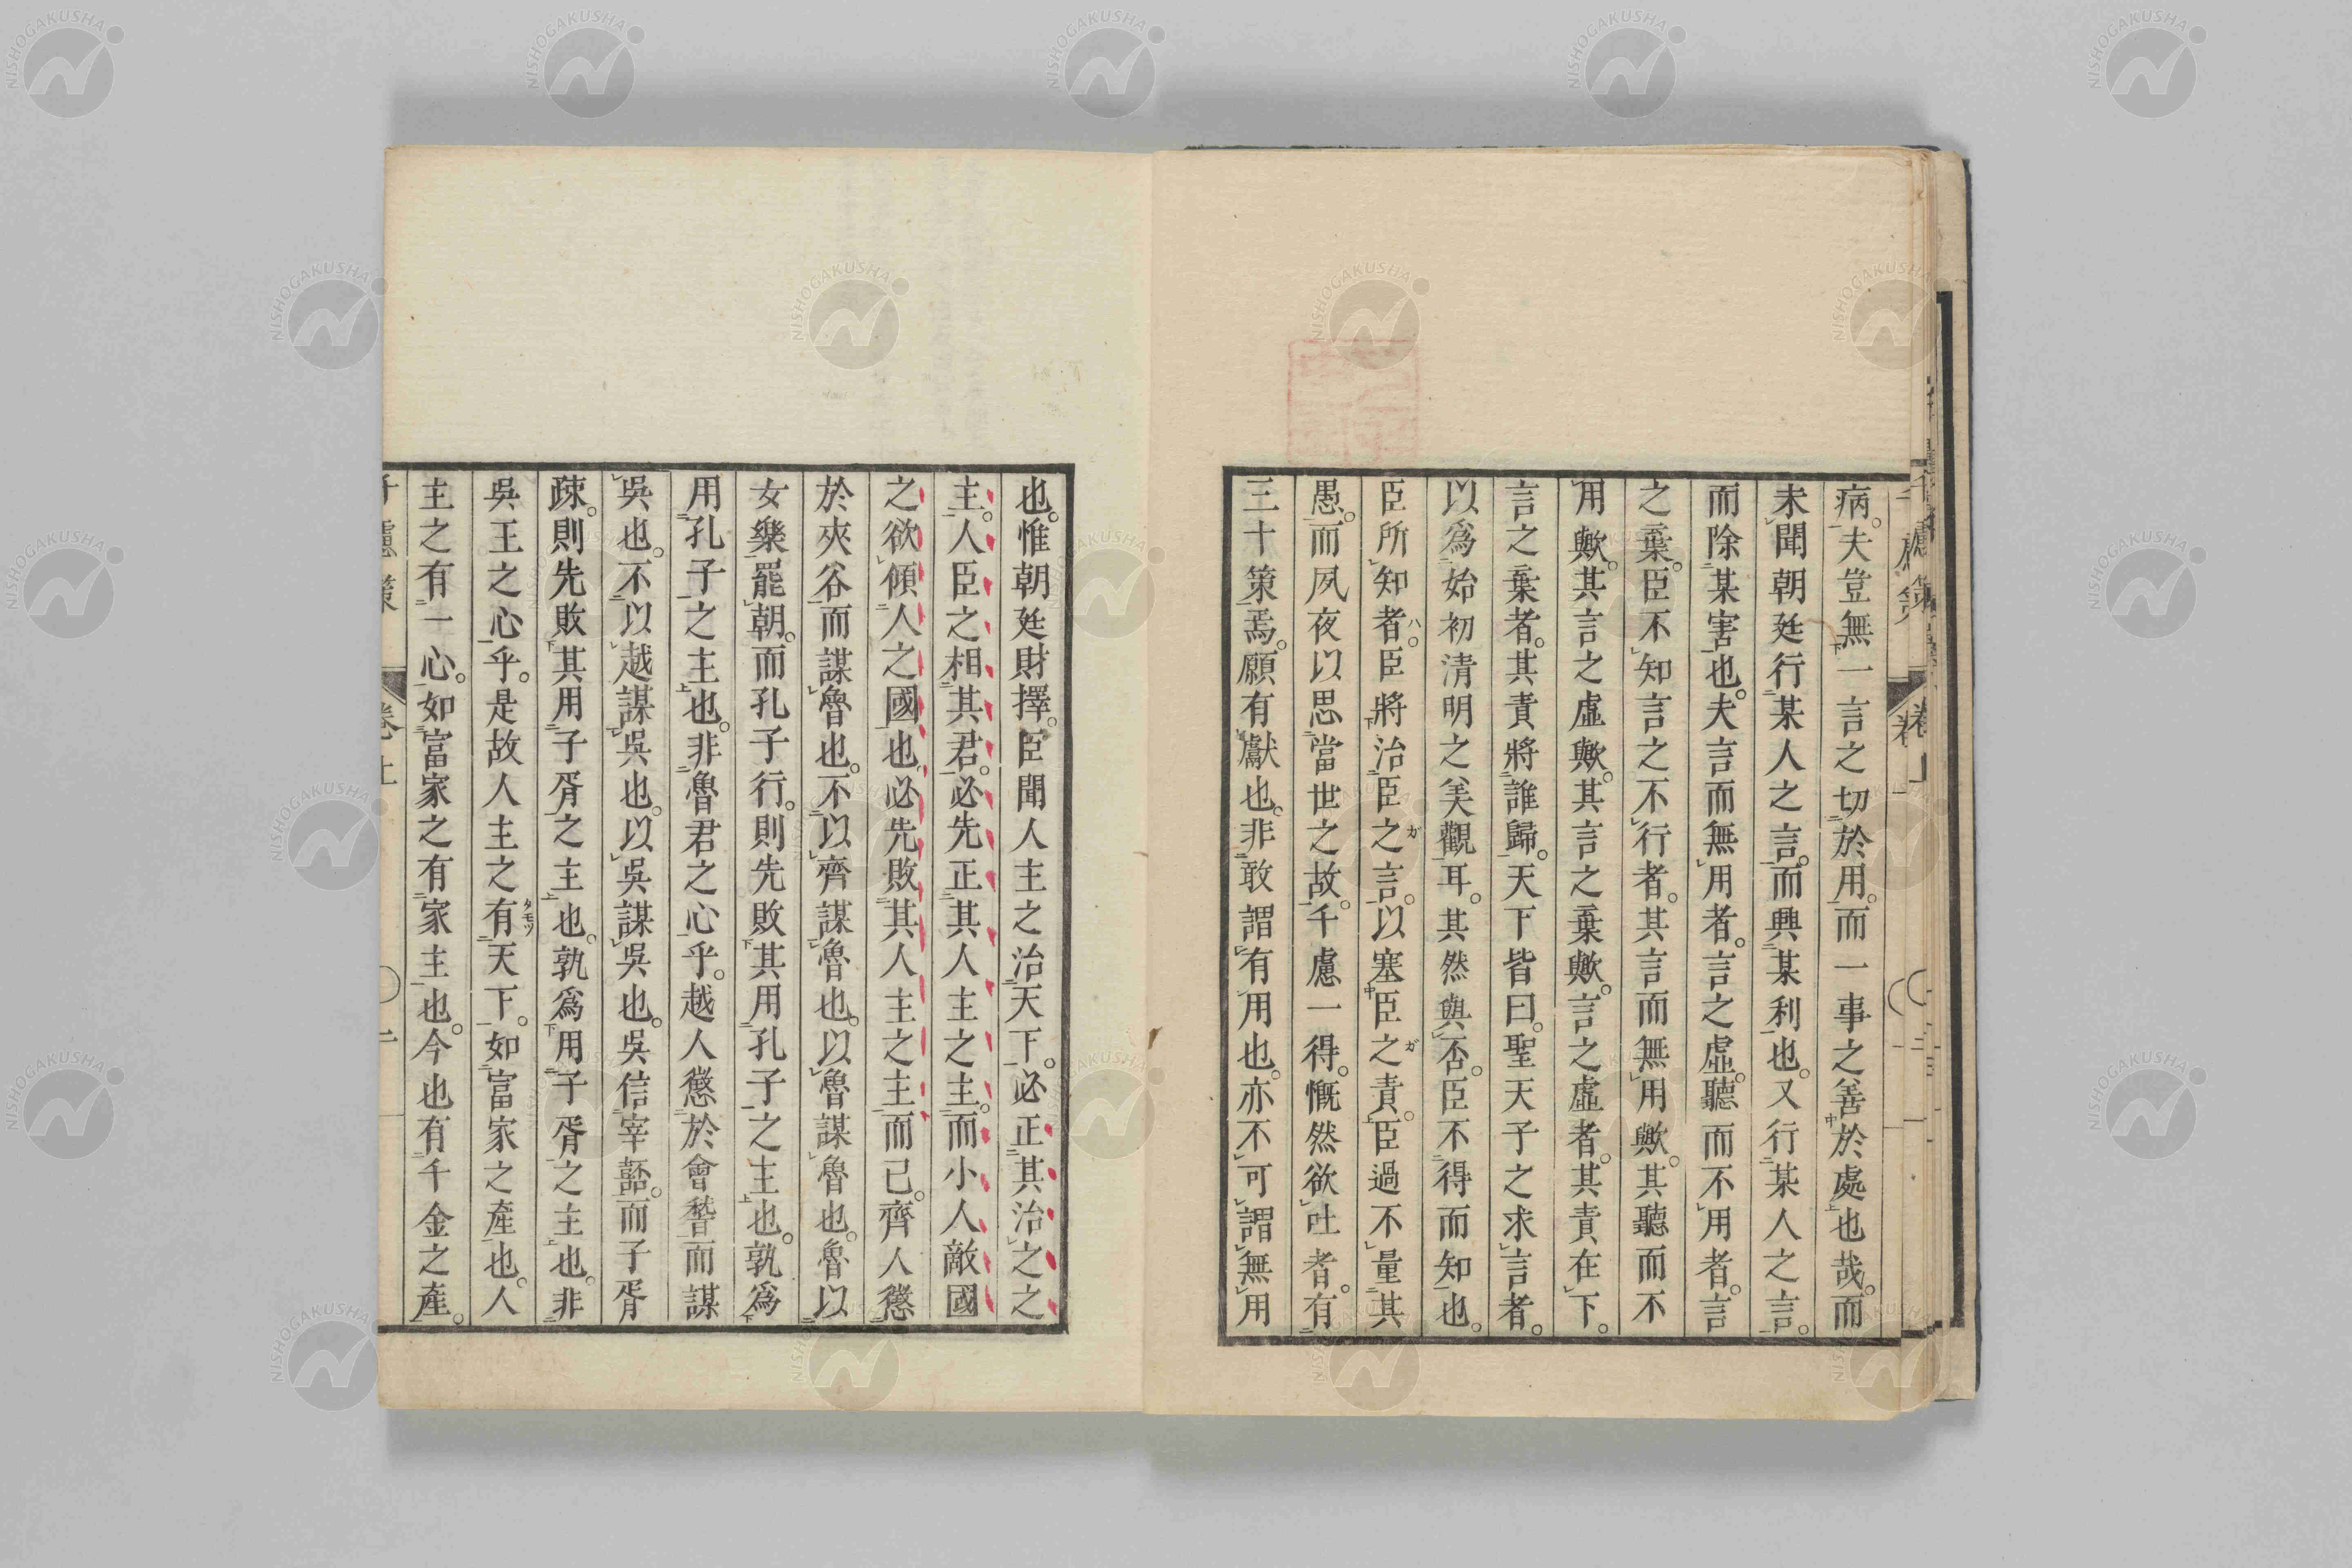 病。夫豈無一言之切於用。而一事之善於處也哉。而
未聞朝廷行某人之言。而興某利也。又行某人之言。
而除某害也。夫言而無用者。言之虛。聽而不用者。言
之棄。臣不知言之不行者。其言而無用歟。其聽而不
用歟。其言之虛歟。其言之棄歟。言之虛者。其責在下。
言之棄者。其責將誰歸。天下皆曰。聖天子之求言者。
以爲始初清明之美觀耳。其然與否。臣不得而知也。
臣所知者ハ。臣將治臣之ガ言。以塞臣之ガ責。臣過不量其
愚。而夙夜以思當世之故。千慮一得。慨然欲吐者。有
三十策焉。願有獻也。非敢謂有用也。亦不可謂無用
也。惟朝廷財擇。臣聞人主之治天下。必正其治之之
主。人臣之相其君。必先正其人主之主。而小人敵國
之欲傾人之國也。必先敗其人主之主而已。齊人懲
於夾谷而謀魯也。不以齊謀魯也。以魯謀魯也。魯以
女樂罷朝。而孔子行。則先敗其用孔子之主也。孰爲
用孔子之主也。非魯君之心乎。越人懲於會稽而謀
吳也。不以越謀吳也。以吳謀吳也。吳信宰嚭。而子胥
疎。則先敗其用子胥之主也。孰爲用子胥之主也。非
吳王之心乎。是故人主之有タモツ天下。如富家之產也。人
主之有一心。如富家之有家主也。今也有千金之產。
NISHOGAKUSHA